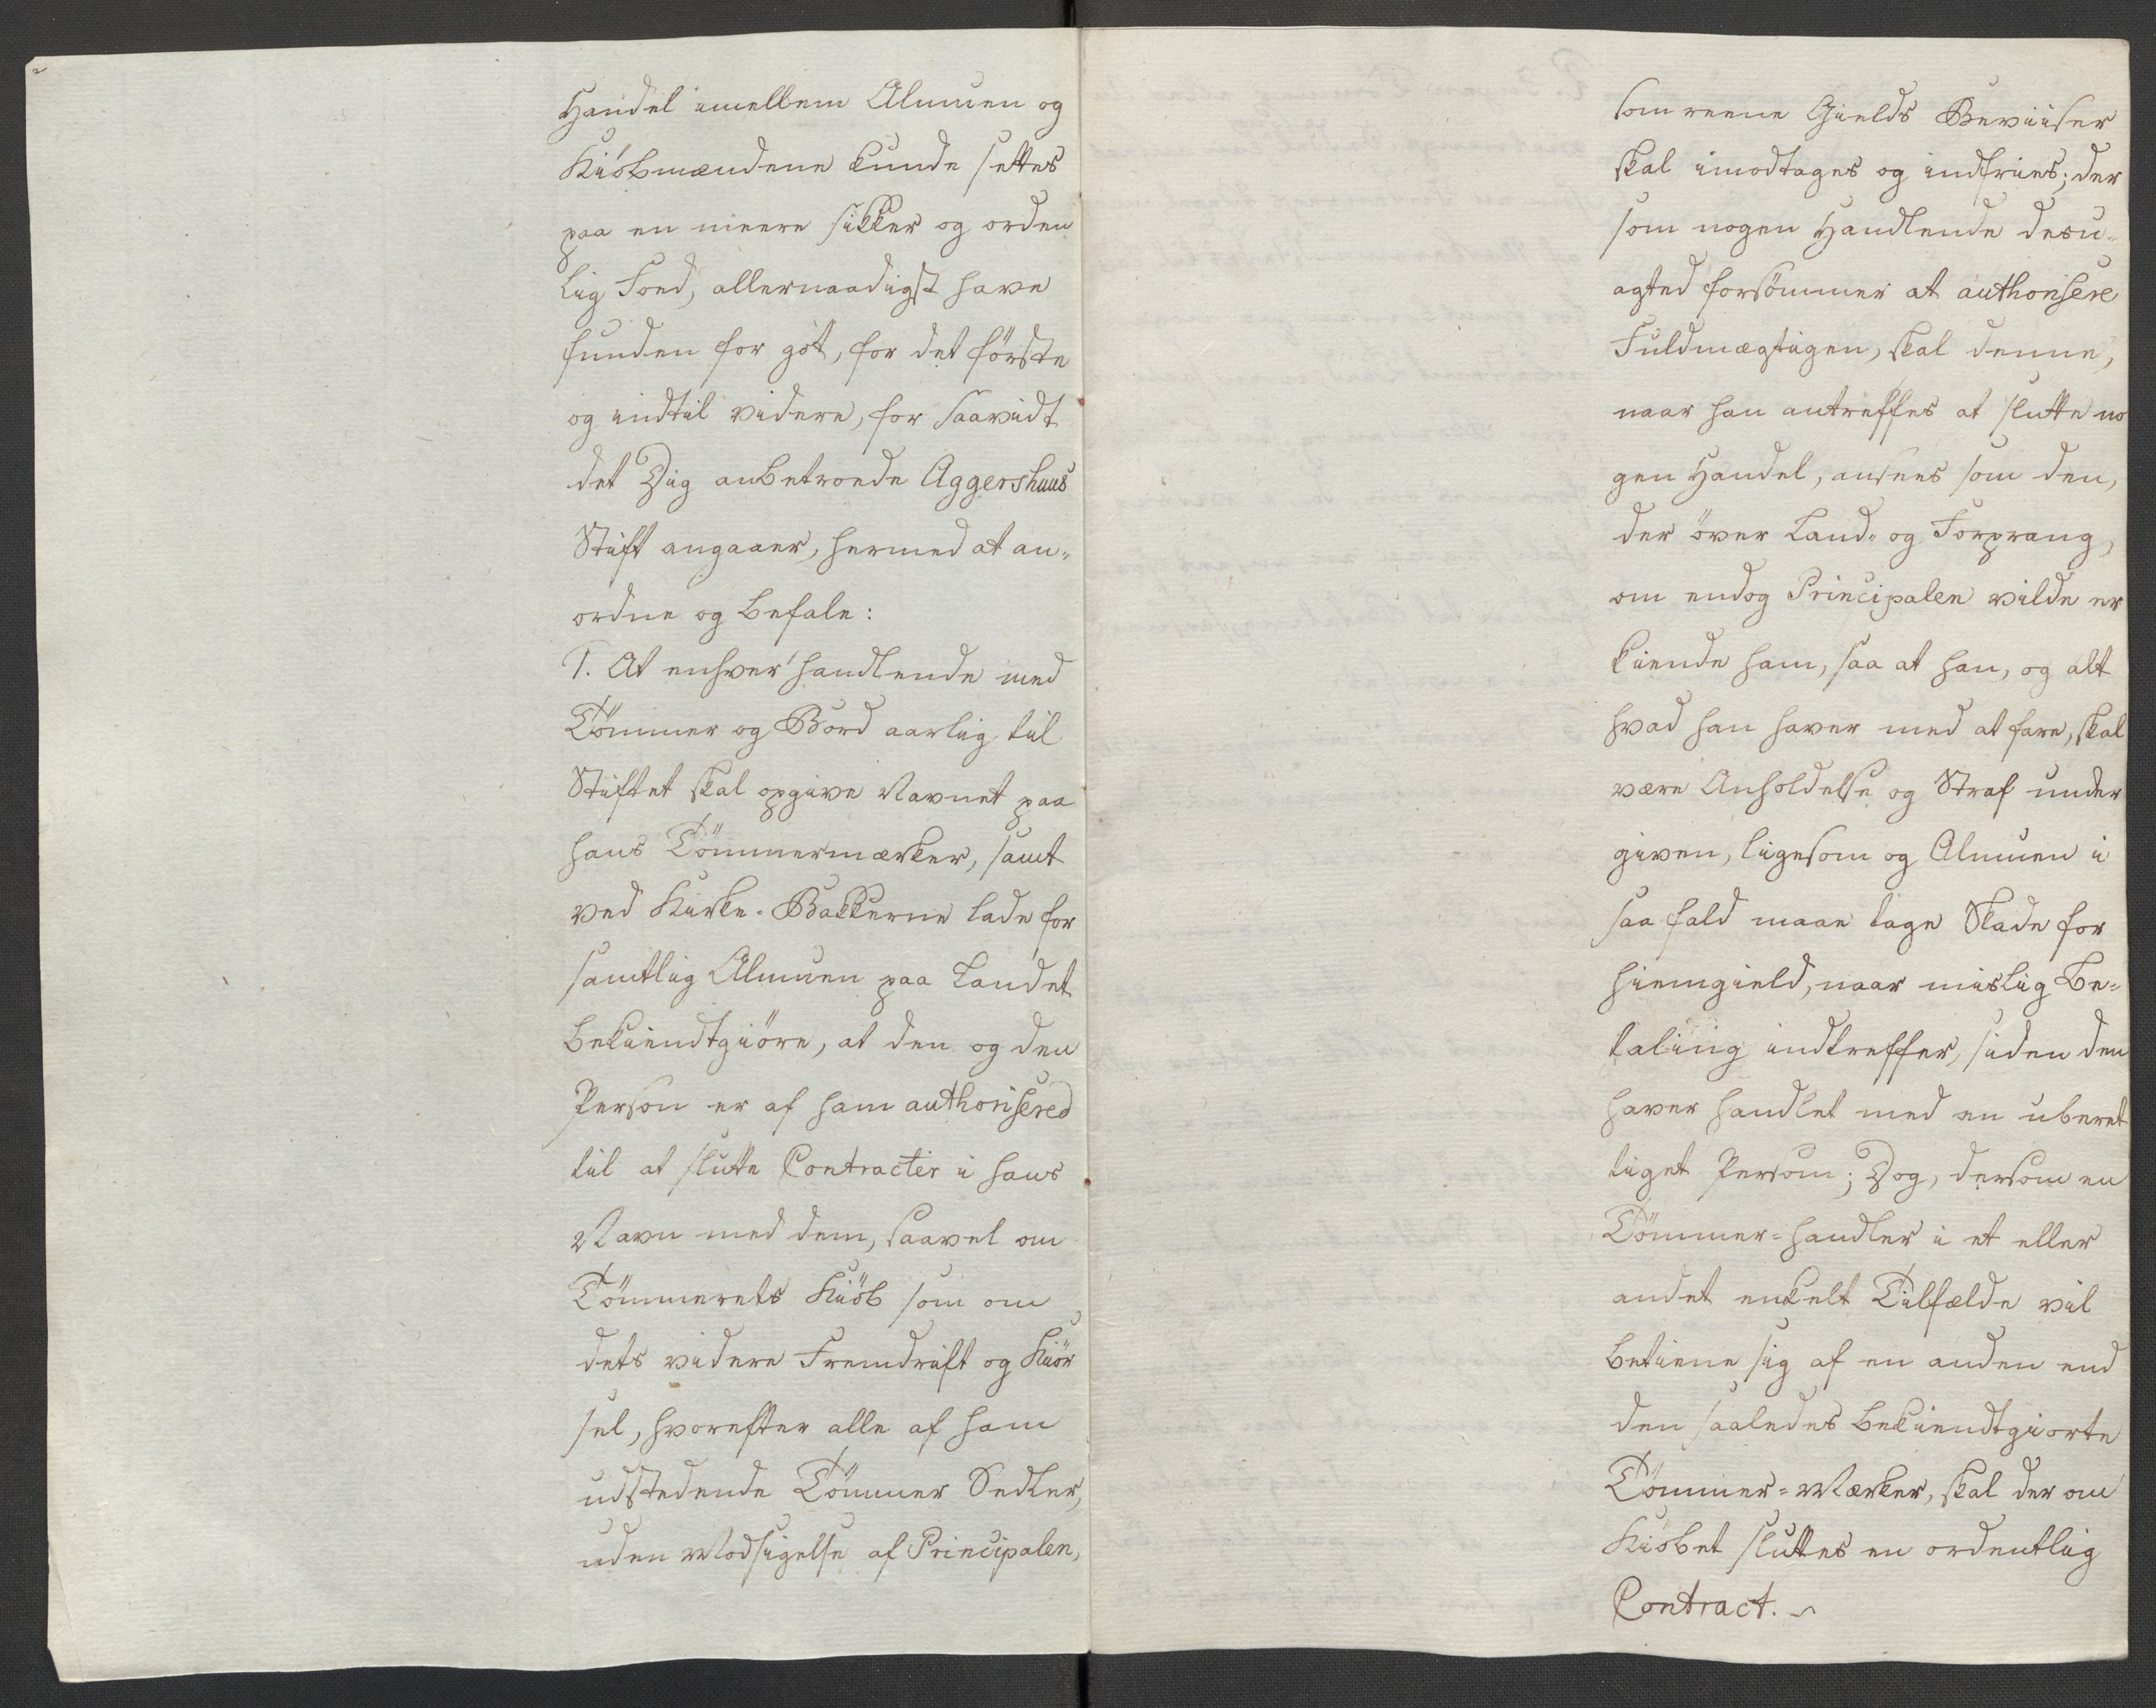 Handel imellem Almuen og
Kiöbmændene kunde settes
paa en meere sikker og orden
lig Foed, allernaadigst have
funden for got, for det förste
og indtil videre, for saavidt
det Dig anbetroede Aggershuus
Stift angaaer, hermed at an-
ordne og befale:
1. At enhver handlende med
Tömmer og Bord aarlig til
Stiftet skal opgive Navnet paa
hans Tömmermærker, samt
ved Kirke-Bakkerne lade for
samtlig Almuen paa Landet
bekiendtgiöre, at den og den
Person er af ham authorisered
til at slutte Contracter i hans
Navn med dem, saavel om
Tömmerets Kiöb som om
dets videre Fremdrift og Kiör
sel, hvorefter alle af ham
udstedende Tömmer Sedler,
uden Modsigelse af Principalen,
som reene Gields Beviiser
skal imodtages og indfries; der
som nogen Handlende desu-
agted forsömmer at authorisere
Fuldmægtigen, skal denne,
naar han antreffes at slutte no
gen Handel, ansees som den,
der över Land- og Forprang,
om endog Principalen vilde er
kiende ham, saa at han, og alt
hvad han haver med at fare, skal
være Anholdelse og Straf under
given, ligesom og Almuen i
saa fald maae tage Skade for
hiemgield, naar mislig Be-
taling indtreffer, siden den
haver handlet med en uberet
tiget Person; Dog, dersom en
Tömmer-handler i et eller
andet enkelt Tilfælde vil
betiene sig af en anden end
den saaledes bekiendtgiorte
Tömmer-Mærker, skal der om
Kiöbet sluttes en ordentlig
Contract.